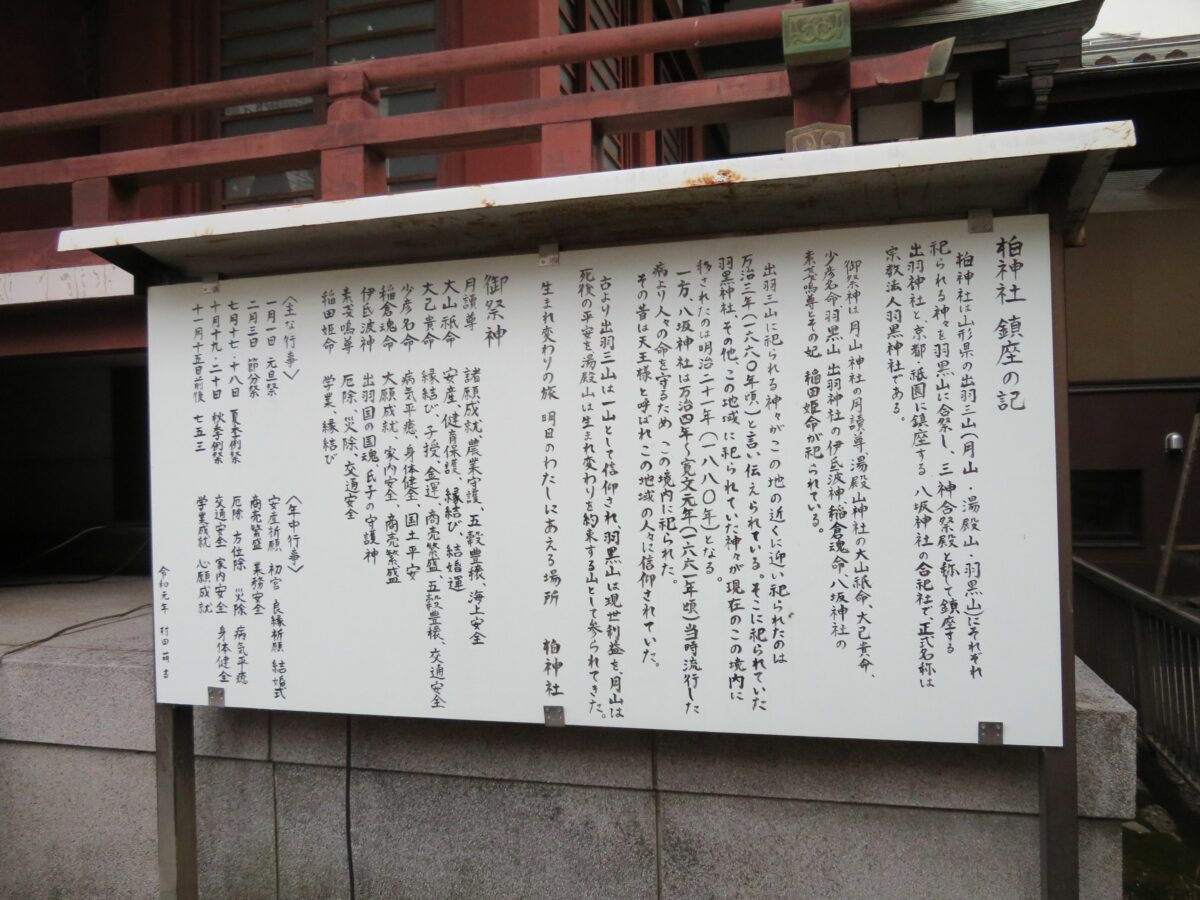 柏神社 鎮座の記
柏神社は山形県の出羽三山(月山・湯殿山・羽黒山)にそれぞれ
祀られる神々を羽黒山に合祭し、三神合祭殿と称して鎮座する
出羽神社と、京都祇園に鎮座する 八坂神社の合祀社で、正式名称は
宗教法人羽黒神社である。
御祭神は月山神社の月讀尊、湯殿山神社の大山祇命、大己貴命、
少彦名命、羽黒山 出羽神社の伊氐波神、稲倉魂命、八坂神社の
素盞嗚尊とその妃 稲田姫命が祀られている。
出羽三山に祀られる神々がこの地の近くに迎い祀られたのは
万治三年(一六六〇年頃)と言い伝えられている。そこに祀られていた
羽黒神社、その他、この地域に祀られていた神々が現在のこの境内に
移されたのは明治二十一年(一八八〇年)となる。
一方、八坂神社は万治四年~寛文元年(一六六一年頃)当時流行した
病より人々の命を守るため この境内に祀られた。
その昔は天王様と呼ばれ、この地域の人々に信仰されていた。
古より出羽三山は一山として信仰され、羽黒山は現世利益を、月山は
死後の平安を、湯殿山は生まれ変わりを約束する山として参られてきた。
生まれ変わりの旅 明日のわたしにあえる場所 柏神社
御祭神
月讀尊 諸願成就、農業守護、五穀豊穣、海上安全
大山祇命 安産、健育保護、縁結び、結婚運
大己貴命 縁結び、子授、金運、商売繁盛、五穀豊穣、交通安全
少彦名命 病気平癒、身体健全、国土平安
稲倉魂命 大願成就、家内安全、商売繁盛
伊氐波神 出羽国の国魂、氏子の守護神
素盞嗚尊 厄除、災除、交通安全
稲田姫命 学業、縁結び
〈主な行事〉
一月一日 元旦祭
二月三日 節分祭
七月十七・十八日 夏季例祭
十月十九・二十日 秋季例祭
十一月十五日前後 七五三
〈年中行事〉
安産祈願 初宮 良縁祈願 結婚式
商売繁盛 業務安全
厄除 方位除 災除 病気平癒
交通安全 家内安全 身体健全
学業成就 心願成就
令和元年 村田